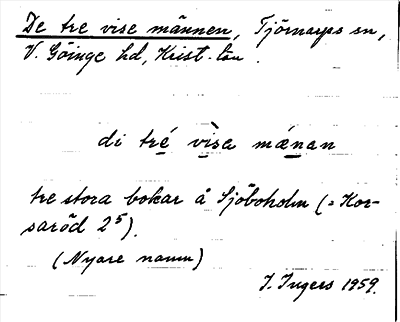 De tre vise männen, Tjörnarps sn,
V. Göinge hd, Krist. län.
di tré vìsa mǽnan
tre stora bokar å Sjöboholm (= Kor-
saröd 2⁵).
(Nyare namn)
I. Ingers 1959.